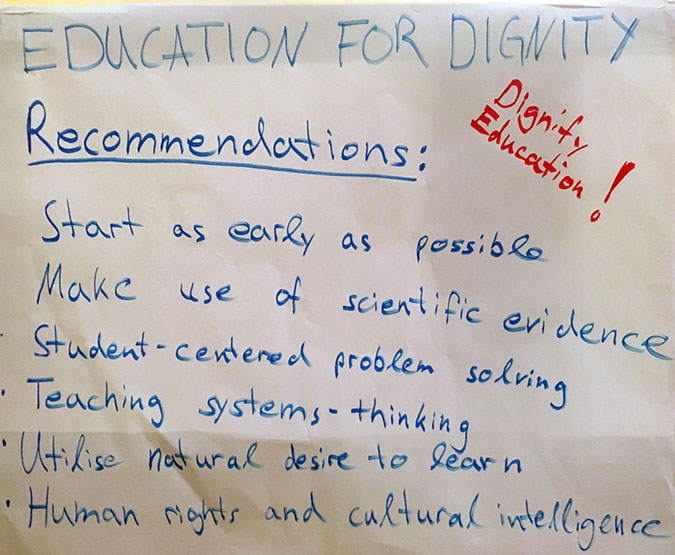 EDUCATION FOR DIGNITY
Dignify
Education!
Recommendations:
Start as early as possible
Make use of scientific evidence
· Student-centered problem solving
· Teaching systems-thinking
· Utilise natural desire to learn
· Human rights and cultural intelligence